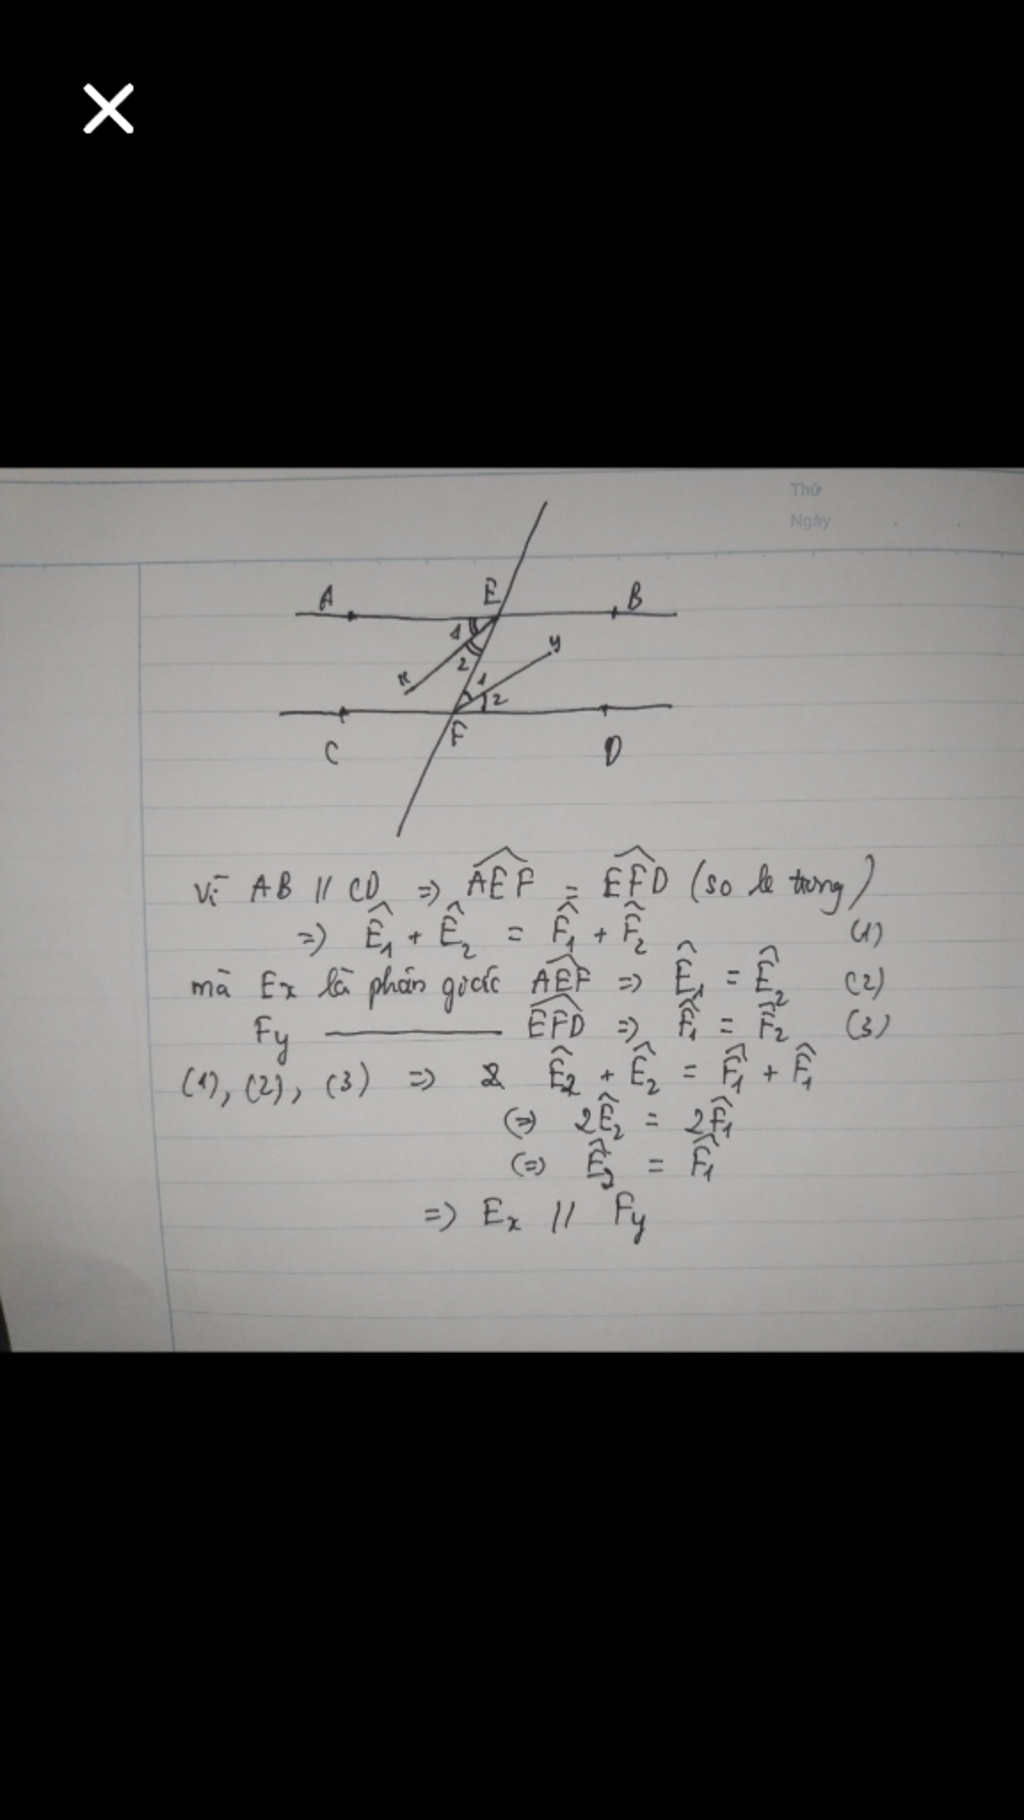 Thứ
Ngày
A E B
1
2 y
x 1
2
F
C D
Vì AB // CD => \widehat{AEF} = \widehat{EFD} (so le trong)
=> Ê₁ + Ê₂ = F̂₁ + F̂₂ (1)
mà Ex là phân giác \widehat{AEF} => Ê₁ = Ê₂ (2)
Fy ——— \widehat{EFD} => F̂₁ = F̂₂ (3)
(1), (2), (3) => Ê₂ + Ê₂ = F̂₁ + F̂₁
(=) 2Ê₂ = 2F̂₁
(=) Ê₂ = F̂₁
=> Ex // Fy